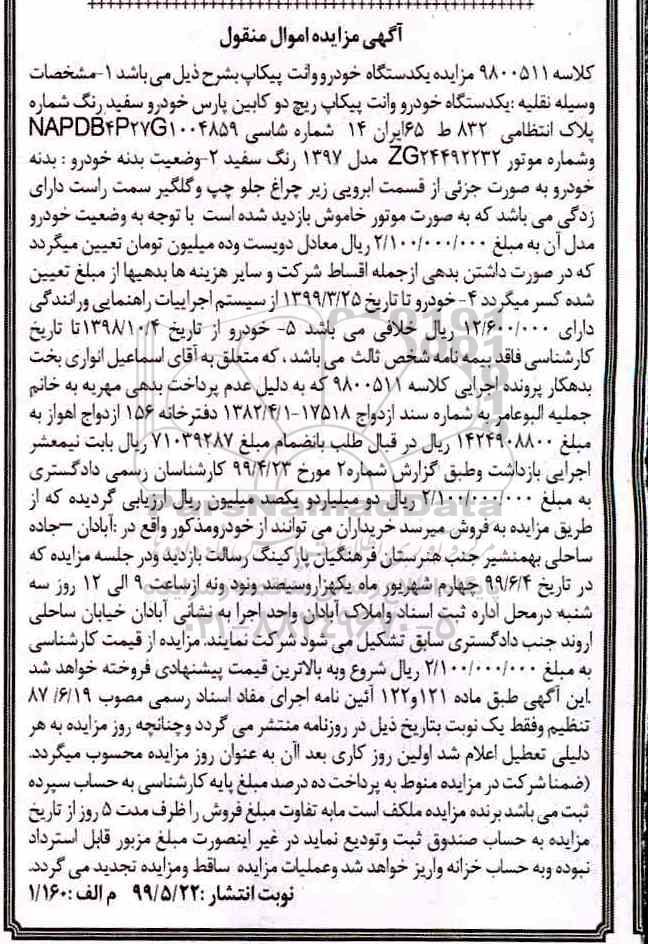 آگهی مزایده اموال منقول
کلاسه ۹۸۰۰۵۱۱ مزایده یکدستگاه خودرو وانت پیکاپ بشرح ذیل می باشد ۱-مشخصات
وسیله نقلیه :یکدستگاه خودرو وانت پیکاپ ریچ دو کابین پارس خودرو سفید رنگ شماره
پلاک انتظامی ۸۳۲ ط ۶۵ایران ۱۴ شماره شاسی NAPDB۴P۲۷G۱۰۰۴۸۵۹
وشماره موتور ZG۲۴۴۹۲۲۳۲ مدل ۱۳۹۷ رنگ سفید ۲-وضعیت بدنه خودرو : بدنه
خودرو به صورت جزئی از قسمت ابرویی زیر چراغ جلو چپ وگلگیر سمت راست دارای
زدگی می باشد که به صورت موتور خاموش بازدید شده است با توجه به وضعیت خودرو
مدل آن به مبلغ ۲/۱۰۰/۰۰۰/۰۰۰ ریال معادل دویست وده میلیون تومان تعیین میگردد
که در صورت داشتن بدهی ازجمله اقساط شرکت و سایر هزینه ها بدهیها از مبلغ تعیین
شده کسر میگردد ۴- خودرو تا تاریخ ۱۳۹۹/۳/۲۵ از سیستم اجراییات راهنمایی ورانندگی
دارای ۱۲/۶۰۰/۰۰۰ ریال خلافی می باشد ۵- خودرو از تاریخ ۱۳۹۸/۱۰/۴تا تاریخ
کارشناسی فاقد بیمه نامه شخص ثالث می باشد ، که متعلق به آقای اسماعیل انواری بخت
بدهکار پرونده اجرایی کلاسه ۹۸۰۰۵۱۱ که به دلیل عدم پرداخت بدهی مهریه به خانم
جملیه البوعامر به شماره سند ازدواج ۱۷۵۱۸-۱۳۸۲/۴/۱ دفترخانه ۱۵۶ ازدواج اهواز به
مبلغ ۱۴۲۴۹۰۸۸۰۰ ریال در قبال طلب بانضمام مبلغ ۷۱۰۳۹۲۸۷ ریال بابت نیمعشر
اجرایی بازداشت وطبق گزارش شماره۲ مورخ ۹۹/۴/۲۳ کارشناسان رسمی دادگستری
به مبلغ ۲/۱۰۰/۰۰۰/۰۰۰ ریال دو میلیاردو یکصد میلیون ریال ارزیابی گردیده که از
طریق مزایده به فروش میرسد خریداران می توانند از خودرومذکور واقع در :آبادان –جاده
ساحلی بهمنشیر جنب هنرستان فرهنگیان پارکینگ رسالت بازدید ودر جلسه مزایده که
در تاریخ ۹۹/۶/۴ چهارم شهریور ماه یکهزاروسیصد ونود ونه ازساعت ۹ الی ۱۲ روز سه
شنبه درمحل اداره ثبت اسناد واملاک آبادان واحد اجرا به نشانی آبادان خیابان ساحلی
اروند جنب دادگستری سابق تشکیل می شود شرکت نمایند.مزایده از قیمت کارشناسی
به مبلغ ۲/۱۰۰/۰۰۰/۰۰۰ ریال شروع وبه بالاترین قیمت پیشنهادی فروخته خواهد شد
.این آگهی طبق ماده ۱۲۱و۱۲۲ آئین نامه اجرای مفاد اسناد رسمی مصوب ۸۷ /۶/۱۹
تنظیم وفقط یک نوبت بتاریخ ذیل در روزنامه منتشر می گردد وچنانچه روز مزایده به هر
دلیلی تعطیل اعلام شد اولین روز کاری بعد اآن به عنوان روز مزایده محسوب میگردد.
(ضمنا شرکت در مزایده منوط به پرداخت ده درصد مبلغ پایه کارشناسی به حساب سپرده
ثبت می باشد برنده مزایده ملکف است مابه تفاوت مبلغ فروش را ظرف مدت ۵ روز از تاریخ
مزایده به حساب صندوق ثبت وتودیع نماید در غیر اینصورت مبلغ مزبور قابل استرداد
نبوده وبه حساب خزانه واریز خواهد شد وعملیات مزایده ساقط ومزایده تجدید می گردد.
نوبت انتشار :۹۹/۵/۲۲ م الف :۱/۱۶۰
ParsNamadData
۰۲۱-۸۸۳۴۹۶۷۰-۵